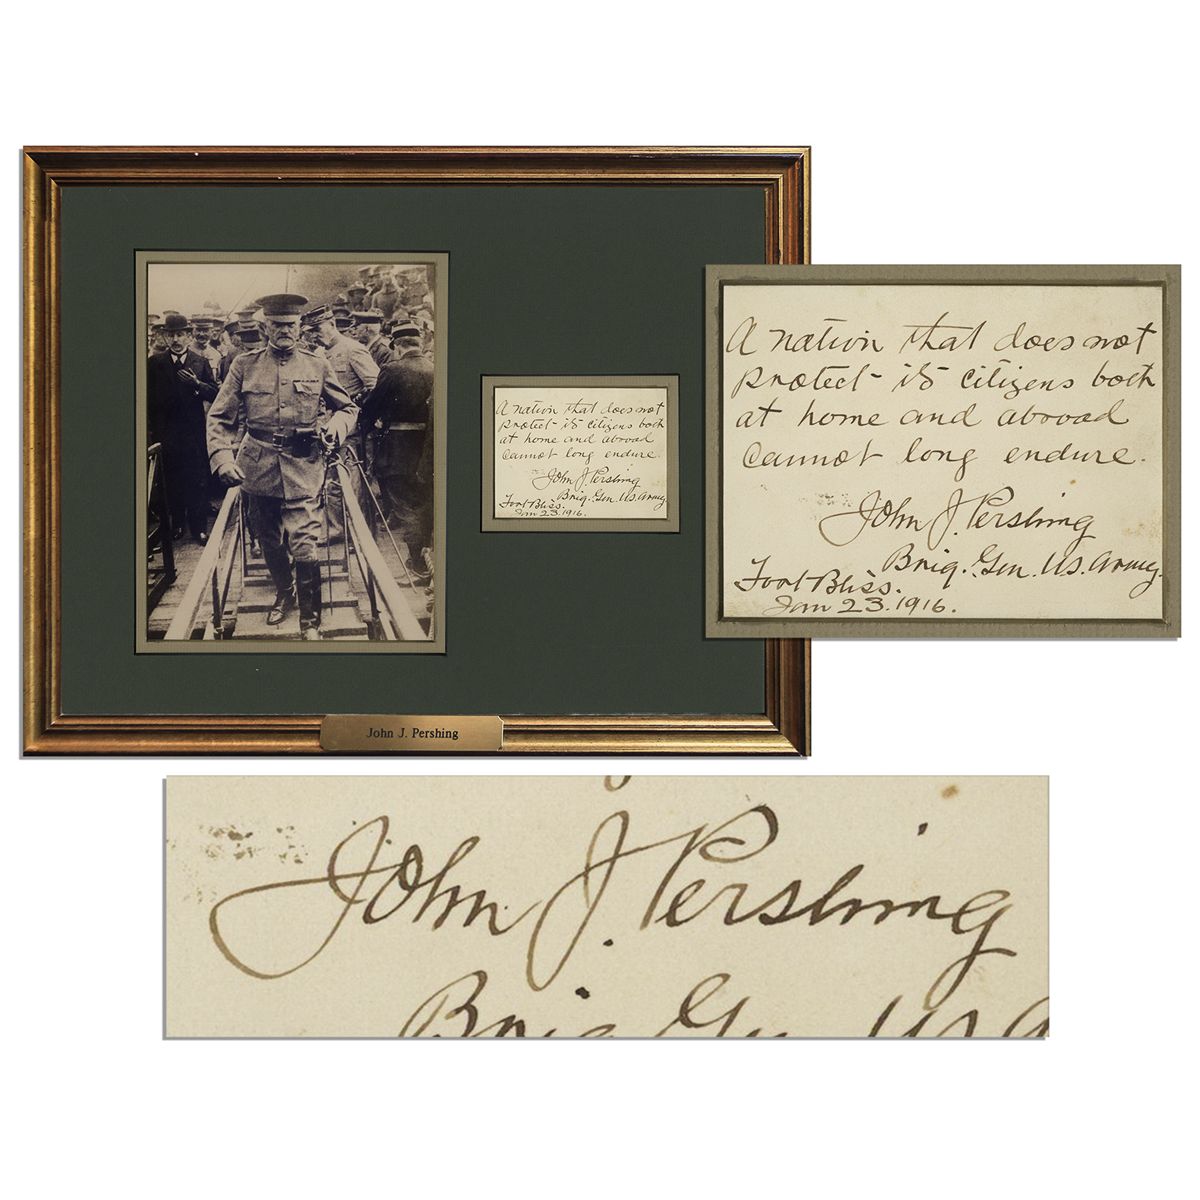 A nation that does not
protect its citizens both
at home and abroad
cannot long endure.
John J. Pershing
Brig. Gen. U.S. Army.
Fort Bliss.
Jan 23. 1916.
A nation that does not
protect its citizens both
at home and abroad
cannot long endure.
John J. Pershing
Brig. Gen. U.S. Army.
Fort Bliss.
Jan 23. 1916.
John J. Pershing
John J. Pershing
Brig. Gen. U.S. A